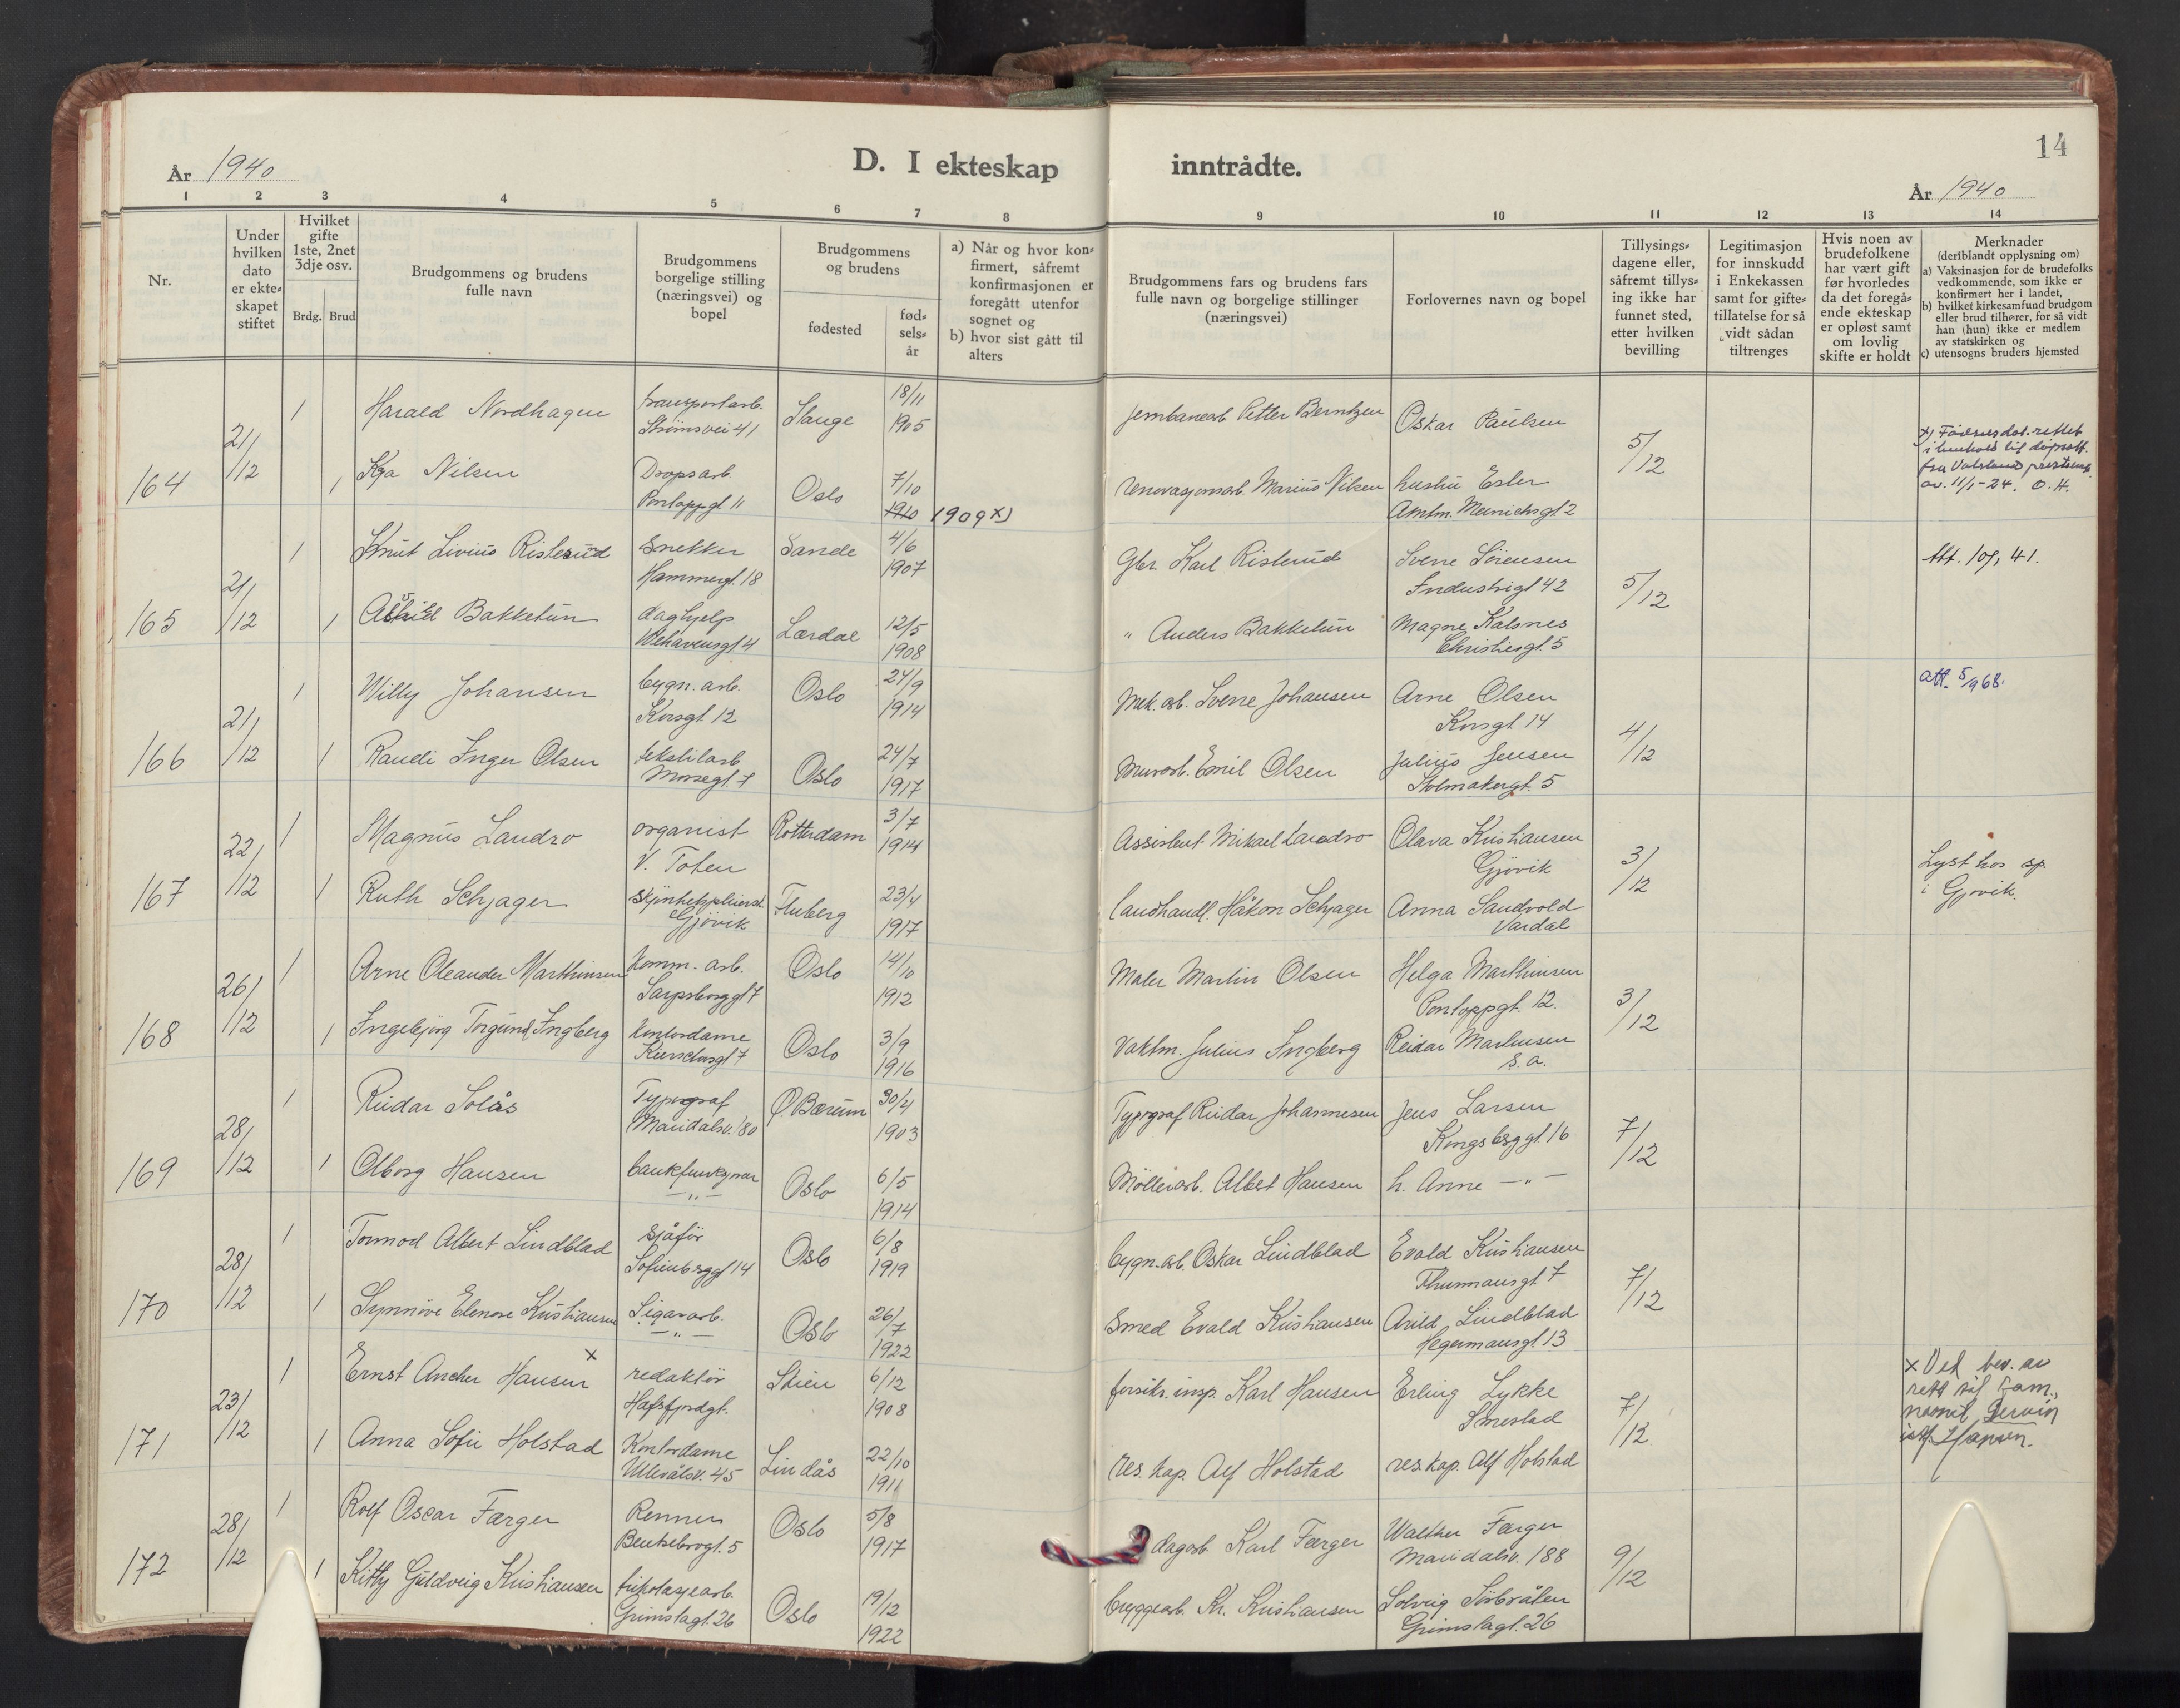 År 1940
D. I ekteskap inntrådte.
14
År 1940
1 2 3 4 5 6 7 8 9 10 11 12 13 14
Nr.
Under hvilken dato er ekteskapet stiftet
Hvilket gifte 1ste, 2net 3dje osv.
Brdg. Brud
Brudgommens og brudens fulle navn
Brudgommens borgelige stilling (næringsvei) og bopel
Brudgommens og brudens
fødested
fødselsår
a) Når og hvor konfirmert, såfremt konfirmasjonen er foregått utenfor sognet og
b) hvor sist gått til alters
Brudgommens fars og brudens fars fulle navn og borgelige stillinger (næringsvei)
Forlovernes navn og bopel
Tillysingsdagene eller, såfremt tillysing ikke har funnet sted, etter hvilken bevilling
Legitimasjon for innskudd i Enkekassen samt for giftetillatelse for så vidt sådan tiltrenges
Hvis noen av brudefolkene har vært gift før hvorledes da det foregående ekteskap er opløst samt om lovlig skifte er holdt
Merknader
(deriblandt opplysning om)
a) Vaksinasjon for de brudefolks vedkommende, som ikke er konfirmert her i landet,
b) hvilket kirkesamfund brudgom eller brud tilhører, for så vidt han (hun) ikke er medlem av statskirken og
c) utensogns bruders hjemsted
164 21/12
1 Harald Nordhagen transportarb. Strømsvei 41 Stange 18/11 1905 jernbanearb. Petter Berntzen Oskar Paulsen 5/12
1 Kya Nilsen Dropsarb. Pontoppgt 11 Oslo 7/10 1910 1909 x) renovasjonsarb. Marius Nilsen hustru Ester Amtm. Meinichsgt 2
x) Fødselsdat. rettet
i henhold til dåpsatt.
fra Vålerland prestemb.
av. 11/1-24. O.H.
165 21/12
1 Knut Livius Risterud Snekker Hammergt. 18 Sande 4/6 1907 Gbr. Karl Risterud Sverre Sörensen Industrigt 42 5/12
Att. 10/1 41.
1 Astrid Bakketun daghjelp Welhavensgt 4 Lærdal 12/5 1908 " Anders Bakketun Magne Kalsnes Christiesgt. 5
166 21/12
1 Willy Johansen bygn. arb. Korsgt. 12 Oslo 24/9 1914 Mek. arb. Sverre Johansen Arne Olsen Korsgt. 14 4/12
att. 5/9 68.
1 Randi Inger Olsen tekstilarb Morsegt. 7 Oslo 24/7 1917 Murarb. Emil Olsen Julius Jensen Stolmakergt. 5
167 22/12
1 Magnus Landro organist V. Toten Rotterdam 3/7 1914 Assistent Mikael Landro Olava Kristiansen Gjövik 3/12
1 Ruth Schjager Skjønhetspleierske Gjövik Fluberg 23/4 1917 landhandl. Håkon Schjager Anna Sandvold Vardal
Lyst hos sp.
i Gjøvik.
168 26/12
1 Arne Oleander Marthinsen Komm. arb. Sarpsborggt 7 Oslo 14/10 1912 Maler Martin Olsen Helga Marthinsen Pontoppgt. 12. 3/12
1 Ingebjörg Torgund Ingberg Kontordame Kierschowsgt 7 Oslo 3/9 1916 Vaktm. Julius Ingberg Reidar Marthinsen s.a.
169 28/12
1 Reidar Solås Typograf Maridalsv. 80 Ø. Bærum 30/4 1903 Typograf Reidar Johannesen Jens Larsen Kongsberggt. 16 7/12
1 Olborg Hansen bankfunksjonær — " — Oslo 6/5 1914 Möllerarb. Albert Hansen h. Anne — " —
170 28/12
1 Tormod Albert Lindblad sjåför Sofienberggt 14 Oslo 6/8 1919 bygn. arb. Oskar Lindblad Evald Kristiansen Thurmansgt. 7 7/12
1 Synnöve Elenore Kristiansen Sigararb. — " — Oslo 26/7 1922 Smed Evald Kristiansen Arild Lindblad Hegermansgt 13
171 23/12
1 Ernst Ancher Hansen x redaktör Hafsfjordgt. Skien 6/12 1908 forsikr. insp. Karl Hansen Erling Lykke Smestad 7/12
1 Anna Sofie Holstad Kontordame Ullevålsv. 45 Lindås 22/10 1911 res. kap. Alf Holstad res. kap. Alf Holstad
x Ved bev. av
rett til fam.
navnet Gervin
istf. Hansen.
172 28/12
1 Rolf Oscar Færger Renner Bentsebrogt. 5 Oslo 5/8 1917 dagarb Karl Færger Walther Færger Maridalsv. 188 9/12
1 Kitty Guldveig Kristiansen trikotasjearb. Grimstagt. 26 Oslo 19/12 1922 bryggearb. Kr. Kristiansen Solveig Sörbråten Grimstagt. 26